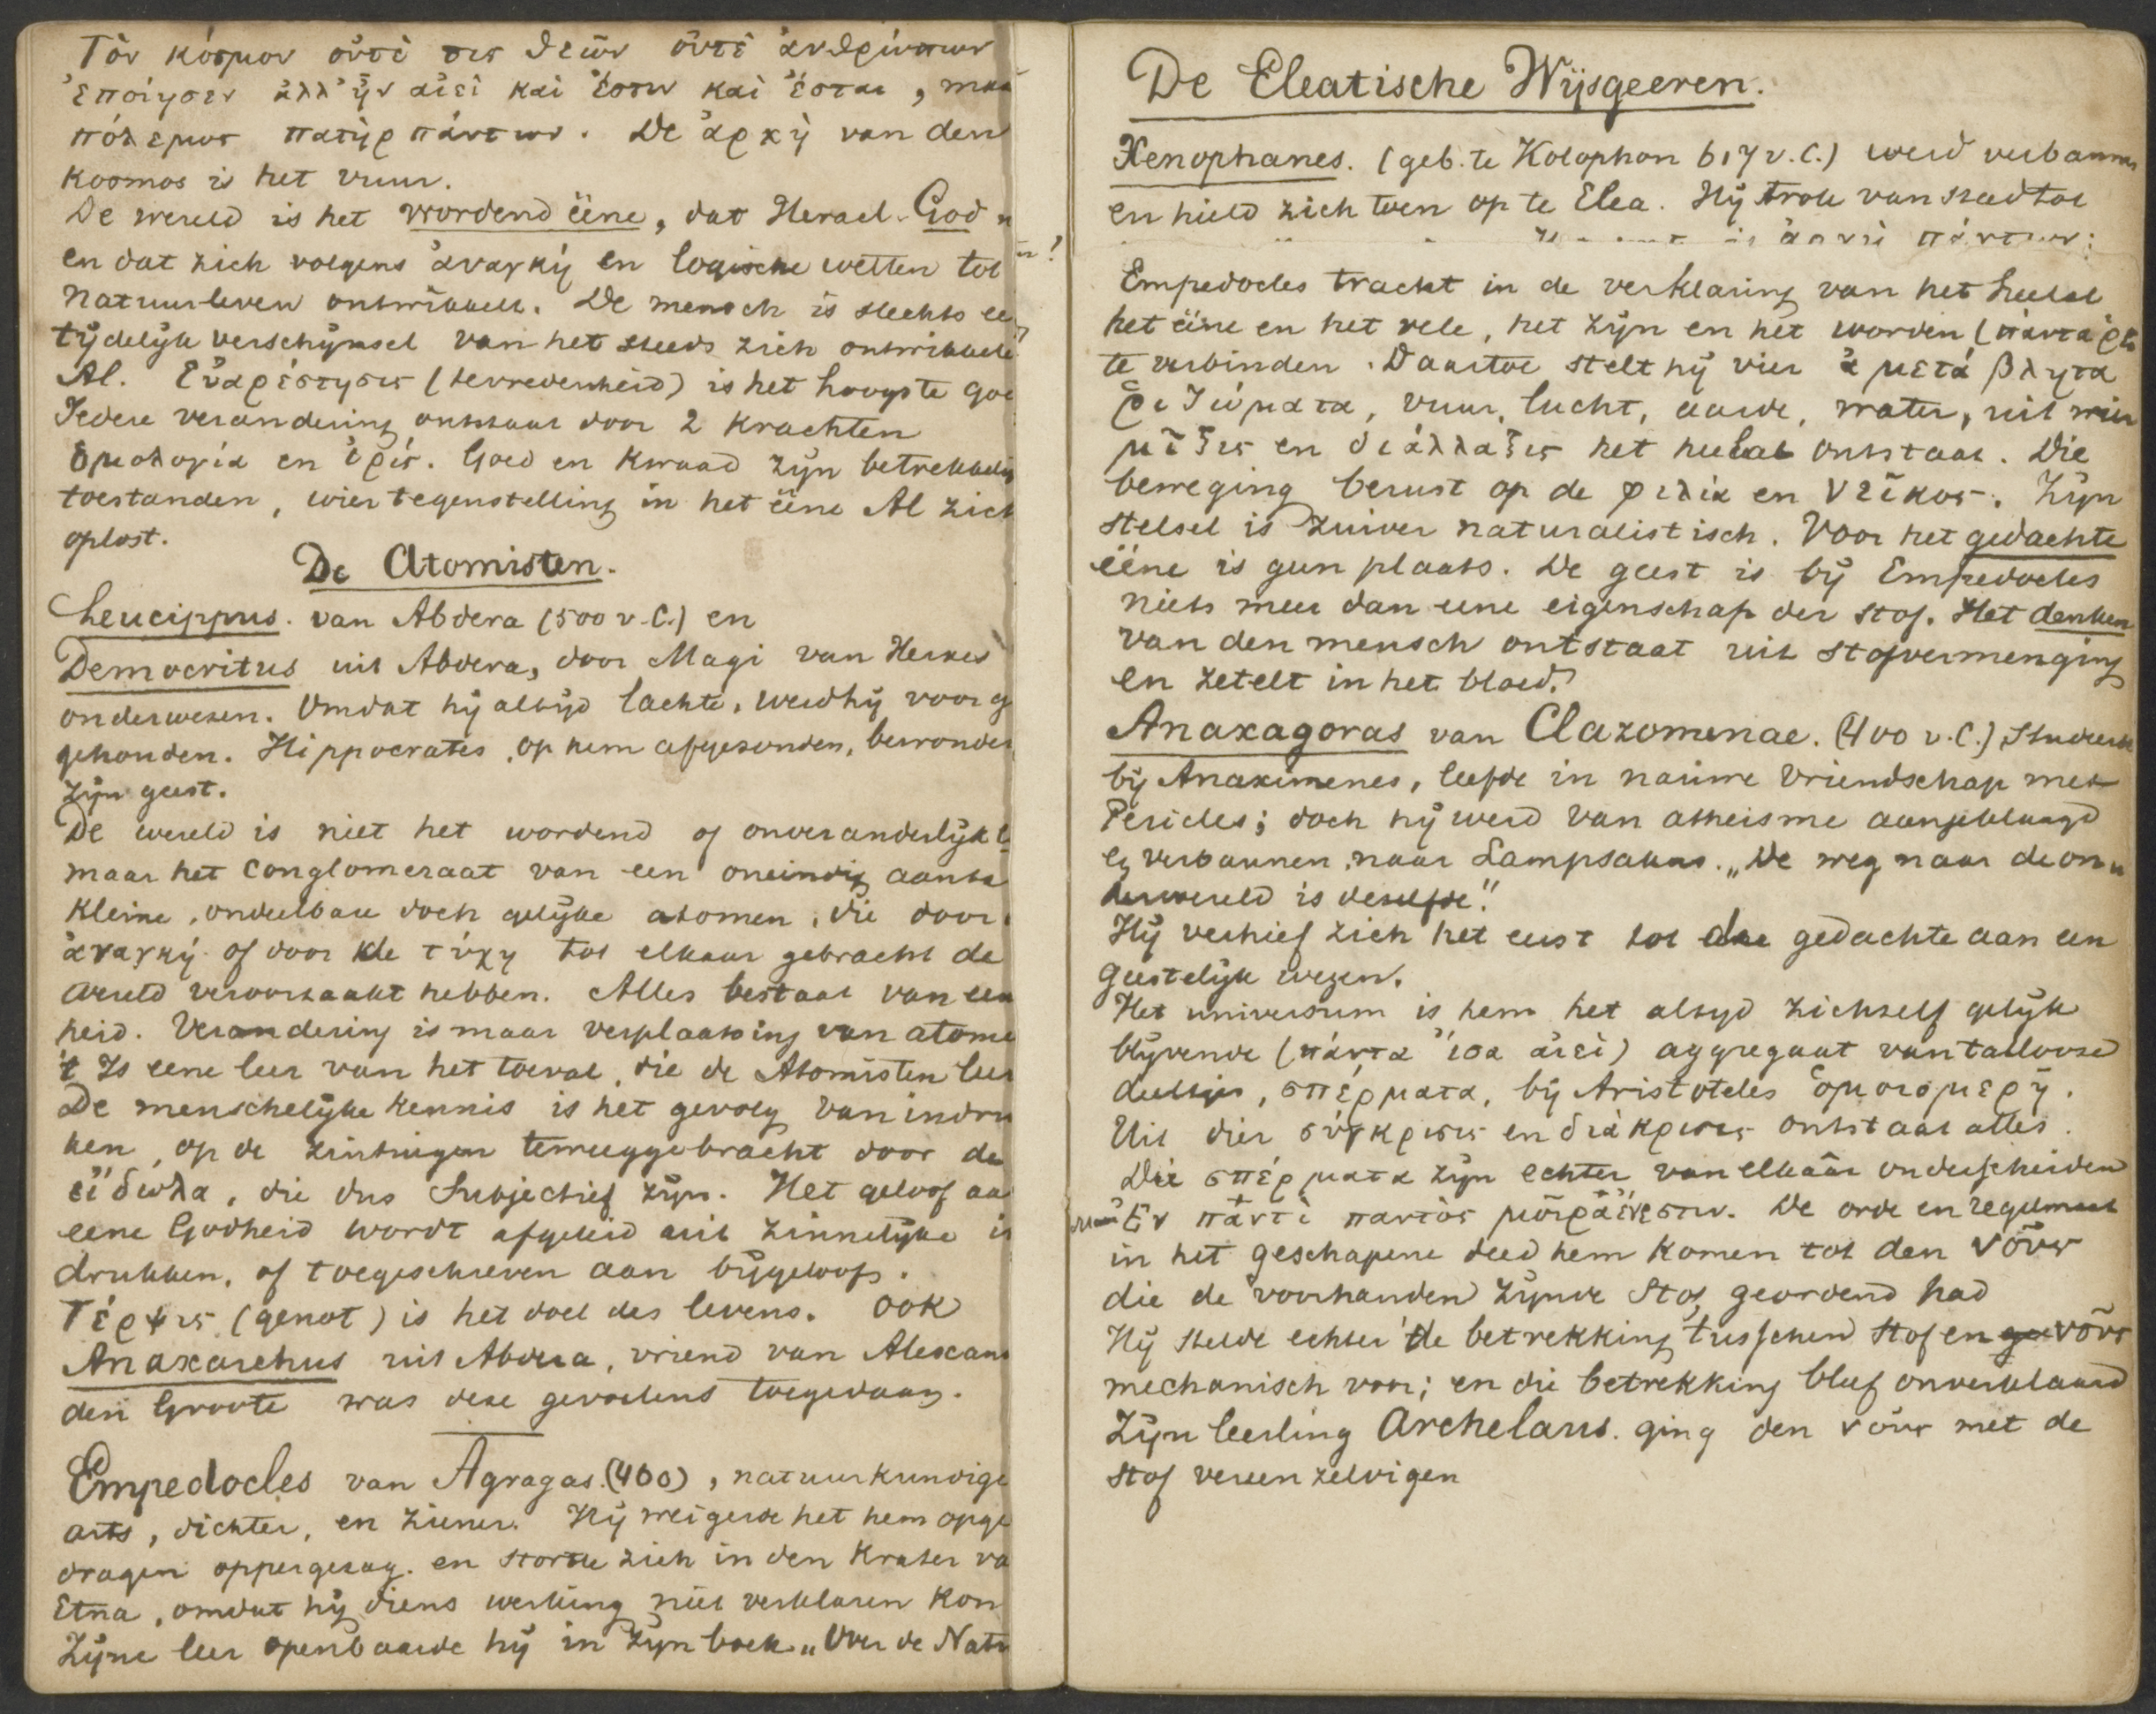 Τὸν κόσμον οὔτὲ τις θεῶν οὔτὲ ἀνθρώπων
ἐποίησεν ἀλλ' ἦν αἰεὶ καὶ ἔστιν καὶ ἔσται, maa
πόλεμος πατὴρ πάντων. De ἀρχὴ van den
Kosmos is het vuur.
De wereld is het wordend ééne, dat Heracl. God n
en dat zich volgens ἀναγκή en logische wetten tot
natuurleven ontwikkelt. De mensch is slechts ee
tijdelijk verschijnsel van het steeds zich ontwikkele
Al. Εὐαρέστησις (tevredenheid) is het hoogste goe
Iedere verandering ontstaat door 2 Krachten
ὁμολογία en ἔρις. Goed en Kwaad zijn betrekkelij
toestanden, wier tegenstelling in het ééne Al zich
oplost.
De Atomisten.
Leucippus. van Abdera (500 v.C.) en
Democritus uit Abdera, door Magi van Herxes
onderwezen. Omdat hij altijd lachte, werd hij voor g
gehouden. Hippocrates, op hem afgezonden, bewonder
zijn geest.
De wereld is niet het wordend of onveranderlijk
maar het conglomeraat van een oneindig aanta
kleine, ondeelbare doch gelijke atomen, die door
ἀναγκή of door de τύχη tot elkaar gebracht de
wereld veroorzaakt hebben. Alles bestaat van een
heid. Verandering is maar verplaatsing van atome
't Is eene leer van het toeval, die de Atomisten leer
De menschelijke kennis is het gevolg van indru
ken, op de zintuigen teweeggebracht door de
εἴδωλα, die dus subjectief zijn. Het geloof aa
eene Godheid wordt afgeleid uit zinnelijke in
drukken, of toegeschreven aan bijgeloof.
Τέρψις (genot) is het doel des levens. Ook
Anaxarchus uit Abdera, vriend van Alexand
den Groote was deze gevoelens toegedaan.
Empedocles van Agragas (460), natuurkundige
arts, dichter, en ziener. Hij weigerde het hem opge
dragen oppergezag. en stortte zich in den Krater va
Etna, omdat hij diens werking niet verklaren Kon
Zijne leer openbaarde hij in zijn boek „Over de Natu
De Eleatische Wijsgeeren.
Xenophanes. (geb. te Kolophon 617 v.C.) werd verbannen
en hield zich toen op te Elea. Hij trok van stad tot
Empedocles tracht in de verklaring van het heelal
het ééne en het vele, het zijn en het worden (πάντα ῥε
te verbinden. Daartoe stelt hij vier ἀμετάβλητα
ῥιζώματα, vuur, lucht, aarde, water, uit wier
μῖξις en διάλλαξις het heelal ontstaat. Die
beweging berust op de φιλία en νεῖκος. Zijn
stelsel is zuiver naturalistisch. Voor het gedachte
ééne is geen plaats. De geest is bij Empedocles
niets meer dan eene eigenschap der stof. Het denken
van den mensch ontstaat uit stofvermenging
en zetelt in het bloed.
Anaxagoras van Clazomenae. (400 v.C.) Studeerde
bij Anaximenes, leefde in nauwe vriendschap met
Pericles; doch hij werd van atheisme aangeklaagd
en verbannen naar Lampsakus. „De weg naar de on
derwereld is dezelfde".
Hij verhief zich het eerst tot de gedachte aan een
geestelijk wezen.
Het universum is hem het altijd zichzelf gelijk
blijvende (πάντα ἴσα ἀιεὶ) aggregaat van tallooze
deeltjes, σπέρματα, bij Aristoteles ὁμοιομερῆ.
Uit dier σύγκρισις en διάκρισις ontstaat alles.
Die σπέρματα zijn echter van elkaâr onderscheiden
maar Ἐν παντὶ παντὸς μοῖρα ἔνεστιν. De orde en regelmaat
in het geschapene deed hem komen tot den νοῦς
die de voorhanden zijnde Stof geordend had
Hij stelde echter de betrekking tusschen Stof en νοῦς
mechanisch voor; en die betrekking bleef onverklaard
Zijn leerling Archelaus. ging den νοῦς met de
Stof vereenzelvigen